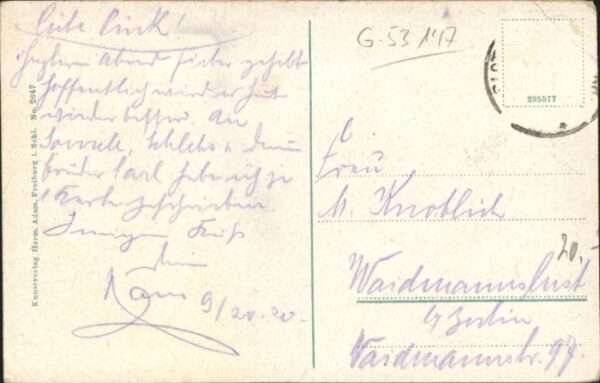 Liebe
Gestern Abend Fieber gehabt
hoffentlich wird er heut
wieder besser. An
u. Deinem
Bruder Carl habe ich je
1 Karte geschrieben.
Innigen Kuß
Dein
Hans 9/20.20.
Kunstverlag Herm. Adam, Freiburg i. Schl. No. 2647
G-53 147
295577
Frau
M. Knoblich
20.-
Waidmannslust
b/ Berlin
Waidmannstr. 97.